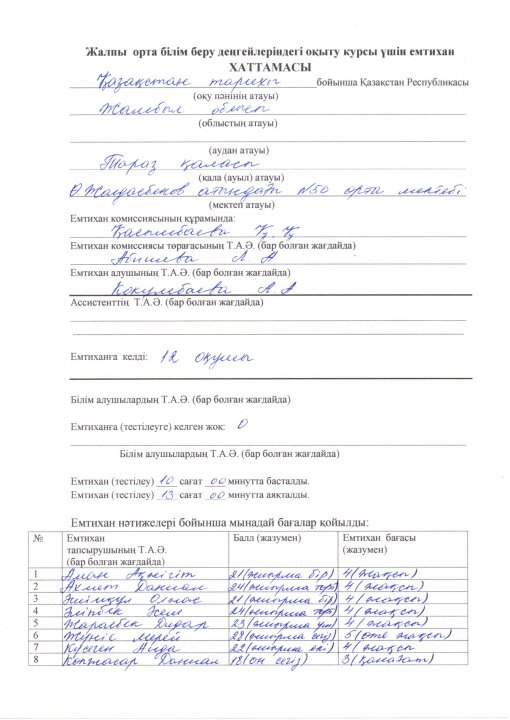 Жалпы орта білім беру деңгейлеріндегі оқыту курсы үшін емтихан
ХАТТАМАСЫ
Қазақстан тарихы бойынша Қазақстан Республикасы
(оқу пәнінің атауы)
Жамбыл облысы
(облыстың атауы)
(аудан атауы)
Тараз қаласы
(қала (ауыл) атауы)
Ө.Жандосбеков атындағы №50 орта мектебі
(мектеп атауы)
Емтихан комиссиясының құрамында:
Қасымбаева Қ.Қ
Емтихан комиссиясы төрағасының Т.А.Ә. (бар болған жағдайда)
Абишева Л А
Емтихан алушының Т.А.Ә. (бар болған жағдайда)
Кокумбаева А.А
Ассистенттің Т.А.Ә. (бар болған жағдайда)
Емтиханға келді: 12 оқушы
Білім алушылардың Т.А.Ә. (бар болған жағдайда)
Емтиханға (тестілеуге) келген жоқ: 0
Білім алушылардың Т.А.Ә. (бар болған жағдайда)
Емтихан (тестілеу) 10 сағат 00 минутта басталды.
Емтихан (тестілеу) 13 сағат 00 минутта аяқталды.
Емтихан нәтижелері бойынша мынадай бағалар қойылды:
№ Емтихан тапсырушының Т.А.Ә. (бар болған жағдайда) Балл (жазумен) Емтихан бағасы (жазумен)
1 Аман Ақжігіт 21(жиырма бір) 4(жақсы)
2 Ахмет Даниал 24(жиырма төрт) 4(жақсы)
3 21(жиырма бір) 4(жақсы)
4 Әліпбек Әсем 24(жиырма төрт) 4(жақсы)
5 Жарасбек Дидар 23(жиырма үш) 4(жақсы)
6 Жүніс Мерей 28(жиырма сегіз) 5(өте жақсы)
7 Күсген Аида 22(жиырма екі) 4(жақсы
8 Коптасар Даниал 18(он сегіз) 3(қанағат)